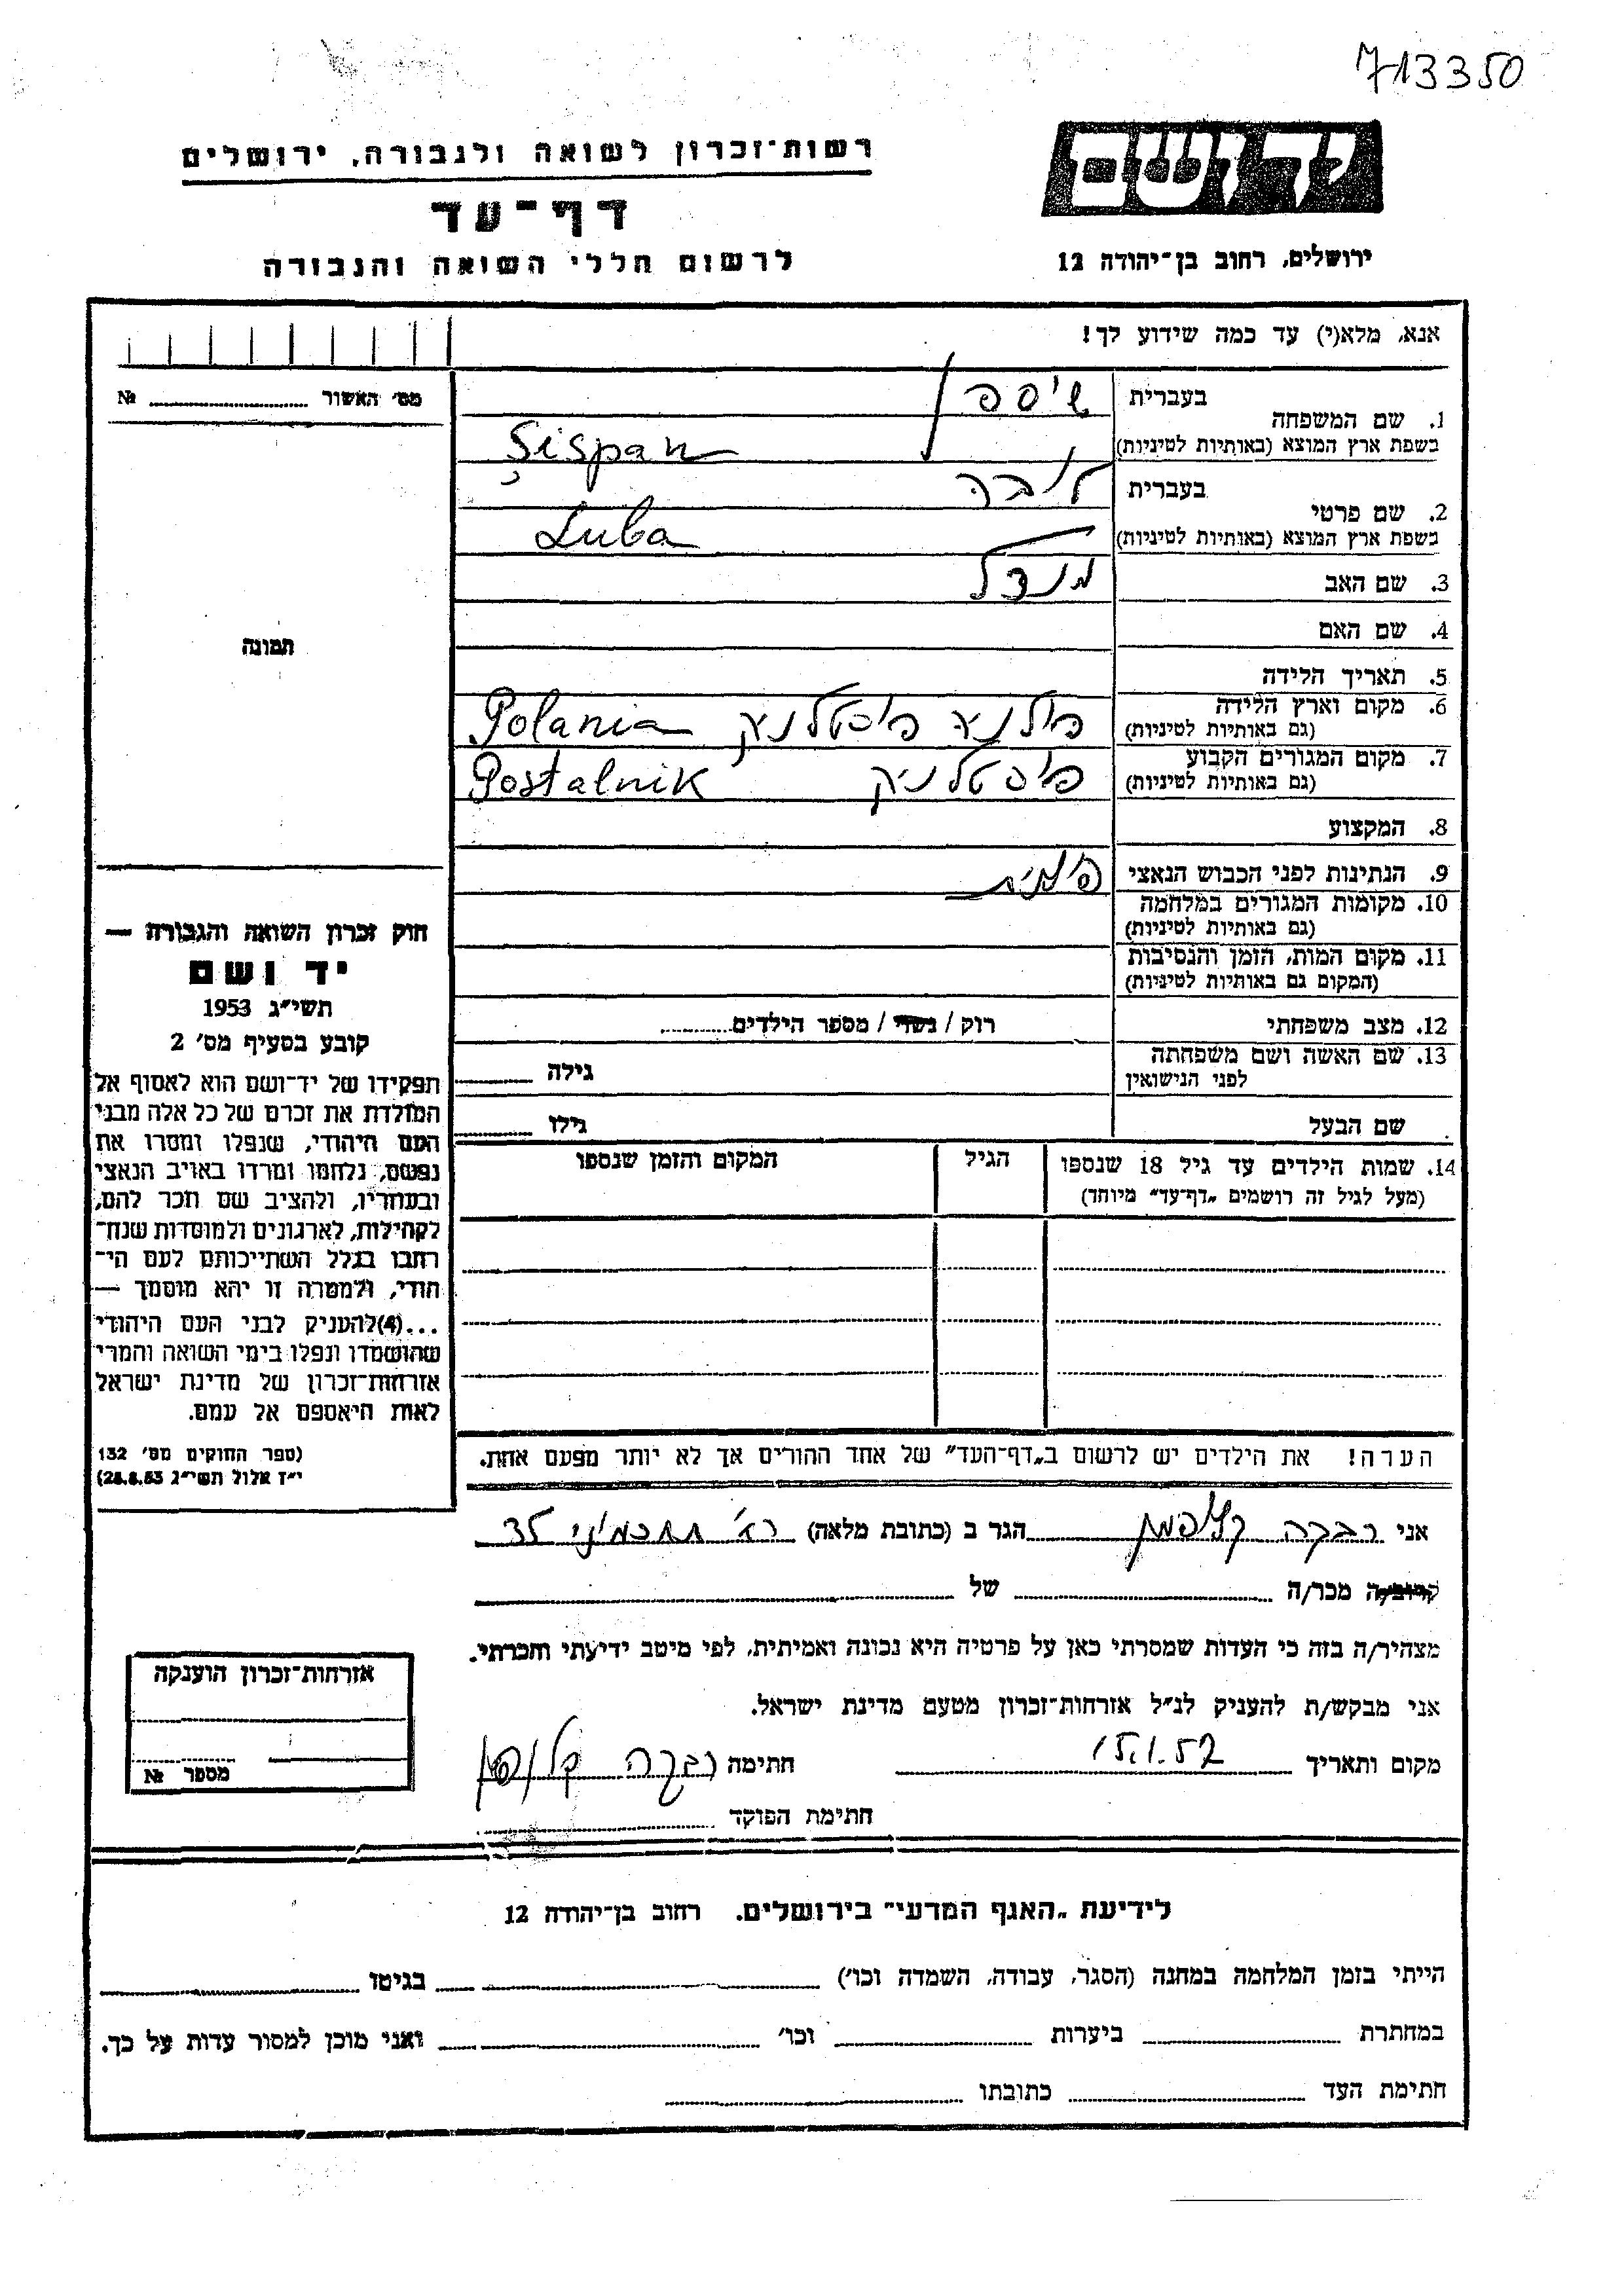 713350
יד ושם
רשות־זכרון לשואה ולגבורה, ירושלים
דף־עד
ירושלים, רחוב בן־יהודה 12
לרשום חללי השואה והגבורה
אנא, מלא(י) עד כמה שידוע לך!
מס׳ האשור № 
1. שם המשפחה בעברית שיספן
בשפת ארץ המוצא (באותיות לטיניות) Şispan
2. שם פרטי בעברית ליבה
בשפת ארץ המוצא (באותיות לטיניות) Luba
3. שם האב מנדל
4. שם האם
תמונה
5. תאריך הלידה
6. מקום וארץ הלידה
(גם באותיות לטיניות) פולניה פוסטלניק Polania
7. מקום המגורים הקבוע
(גם באותיות לטיניות) פוסטלניק Postalnik
8. המקצוע
9. הנתינות לפני הכבוש הנאצי פולנית
10. מקומות המגורים במלחמה
(גם באותיות לטיניות)
11. מקום המות, הזמן והנסיבות
(המקום גם באותיות לטיניות)
12. מצב משפחתי רוק / נשוי / מספר הילדים
13. שם האשה ושם משפחתה
לפני הנישואין גילה
שם הבעל גילו
14. שמות הילדים עד גיל 18 שנספו הגיל המקום והזמן שנספו
(מעל לגיל זה רושמים „דף־עד״ מיוחד)
חוק זכרון השואה והגבורה —
יד ושם
תשי״ג 1953
קובע בסעיף מס׳ 2
תפקידו של יד־ושם הוא לאסוף אל
המולדת את זכרם של כל אלה מבני
העם היהודי, שנפלו ומסרו את
נפשם, נלחמו ומרדו באויב הנאצי
ובעוזריו, ולהציב שם וזכר להם,
לקהילות, לארגונים ולמוסדות שנח־
רבו בגלל השתייכותם לעם הי־
הודי, ולמטרה זו יהא מוסמך —
...(4)להעניק לבני העם היהודי
שהושמדו ונפלו בימי השואה והמרי
אזרחות־זכרון של מדינת ישראל
לאות היאספם אל עמם.
(ספר החוקים מס׳ 132
י״ז אלול תשי״ג 28.8.53)
הערה! את הילדים יש לרשום ב„דף־העד״ של אחד ההורים אך לא יותר מפעם אחת.
אני רבקה קליפמן הגר ב (כתובת מלאה) תחכמוני 35
קרוב/ה מכר/ה של
מצהיר/ה בזה כי העדות שמסרתי כאן על פרטיה היא נכונה ואמיתית, לפי מיטב ידיעתי והכרתי.
אני מבקש/ת להעניק לנ״ל אזרחות־זכרון מטעם מדינת ישראל.
מקום ותאריך 15.1.57 חתימה רבקה קליפמן
חתימת הפוקד
אזרחות־זכרון הוענקה
מספר №
לידיעת „האגף המדעי״ בירושלים. רחוב בן־יהודה 12
הייתי בזמן המלחמה במחנה (הסגר, עבודה, השמדה וכו׳) בגיטו
במחתרת ביערות וכו׳ ואני מוכן למסור עדות על כך.
חתימת העד כתובתו